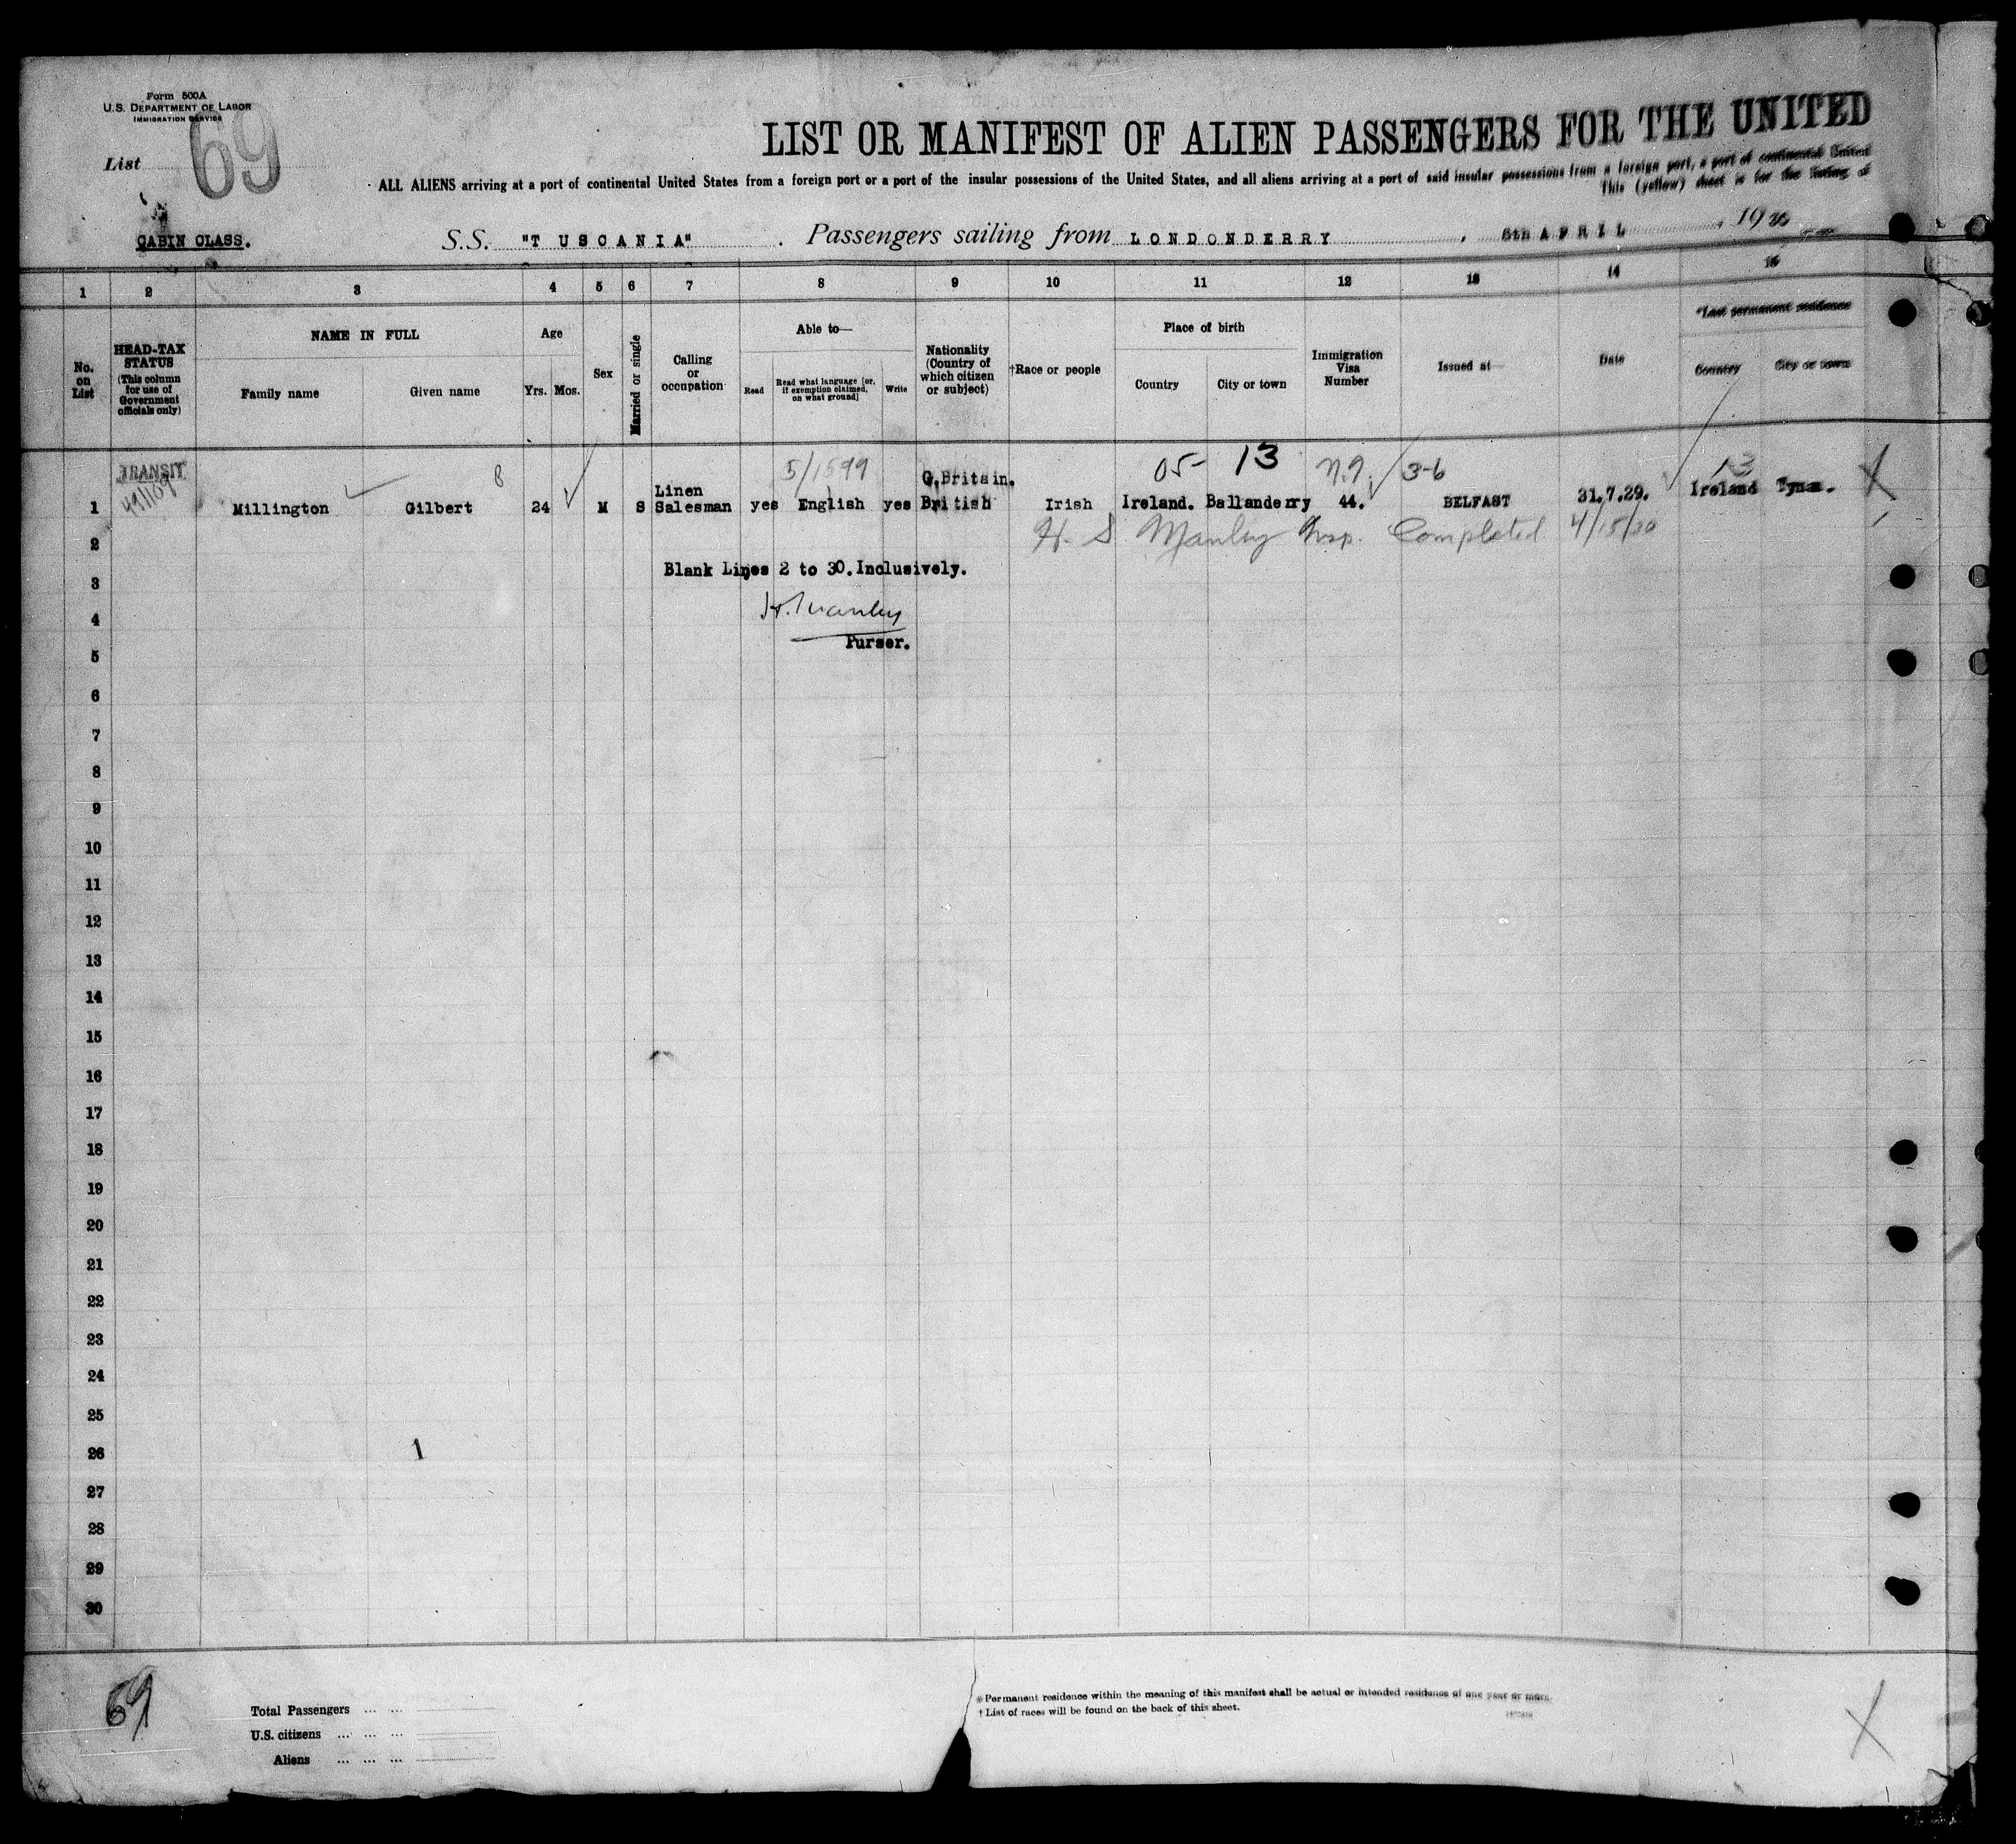 Form 500A
U.S. DEPARTMENT OF LABOR
IMMIGRATION SERVICE
List 69
LIST OR MANIFEST OF ALIEN PASSENGERS FOR THE UNITED
ALL ALIENS arriving at a port of continental United States from a foreign port or a port of the insular possessions of the United States, and all aliens arriving at a port of said insular possessions from a foreign port, a port of continental United
This (yellow) sheet is for the listing of
CABIN CLASS.
S.S. "TUSCANIA". Passengers sailing from LONDONDERRY, 6th APRIL, 1930
1 2 3 4 5 6 7 8 9 10 11 12 13 14 15
No. on List
HEAD-TAX STATUS (This column for use of Government officials only)
NAME IN FULL
Family name Given name
Age
Yrs. Mos.
Sex
Married or single
Calling or occupation
Able to—
Read Read what language [or, if exemption claimed, on what ground] Write
Nationality (Country of which citizen or subject)
†Race or people
Place of birth
Country City or town
Immigration Visa Number
Issued at—
Date
*Last permanent residence
Country City or town
TRANSIT 5/1599 G.Britain. 05- 13 N.I. 3-6 13
1 Millington Gilbert 8 24 M S Linen Salesman yes English yes British Irish Ireland. Ballanderry 44. BELFAST 31.7.29. Ireland Tynan. X
2 H. S. Manley Insp. Completed 4/15/30
Blank Lines 2 to 30. Inclusively.
3
H. Manley
4
Purser.
5
6
7
8
9
10
11
12
13
14
15
16
17
18
19
20
21
22
23
24
25
26 1
27
28
29
30
69
Total Passengers ... ...
U.S. citizens ... ... ...
Aliens ... ... ...
* Permanent residence within the meaning of this manifest shall be actual or intended residence of one year or more.
† List of races will be found on the back of this sheet.
X